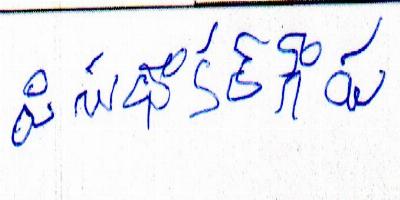 పి సుధాకర్ గౌడు